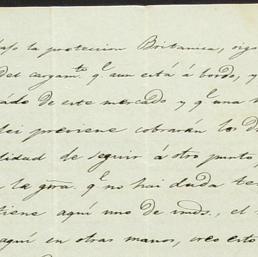 bajo la proteccion Britanica, sigo
del cargam.to q.e aun está á bordo, y
de este mercado y q.e una
lei previene cobrarán los
de seguir á otro punto,
la g.rra q.e no hai duda
tiene aquí uno de vmds., el
aquí en otras manos, creo esto